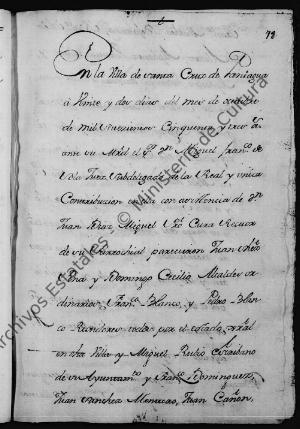 78
En la Villa de Santa Cruz de Paniagua
á Veinte y dos dias del mes de octubre
de mil Setezientos Cinquenta y tres
ante su Mrd. el Sr. Dn. Miguel Franco. de
Juez Subdelegado de la Real y única
Contribucion en ella con asistencia de Dn.
Juan Diaz Miguel Cura Rector
de su Parrochial parecieron Juan
y Domingo Cecilio Alcaldes or
dinarios, Franco. Blanco, y Pedro Blan
co Rexidores todos por el estado
en dha Villa y Miguel Rubio Escribano
de su Ayuntamto. y Franco. Dominguez,
Juan Sanchez Menacao, Juan Cañon,
Archivos Estatales © Ministerio de Cultura